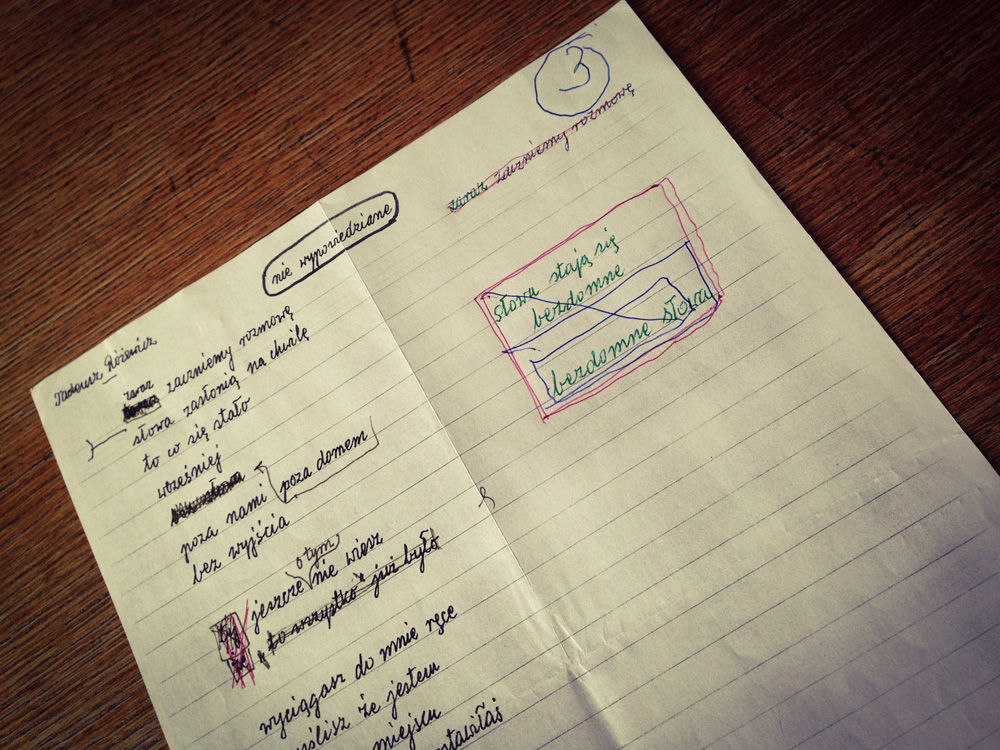 3
zaraz zaczniemy rozmowę
nie wypowiedziane
słowa stają się
bezdomne
bezdomne słowa
Tadeusz Różewicz
zaraz
zaczniemy rozmowę
słowa zasłonią na chwilę
to co się stało
wcześniej
poza nami poza domem
bez wyjścia
o tym
jeszcze nie wiesz
to wszystko już było
wyciągasz do mnie ręce
myślisz że jestem
miejscu